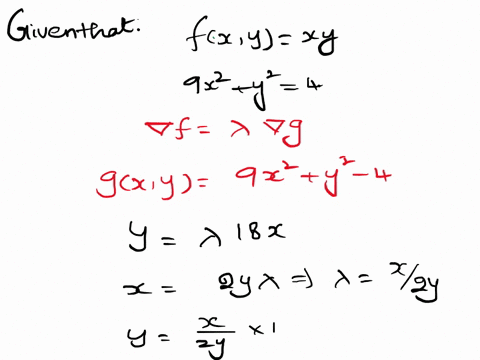 Given that:
f(x,y) = xy
9x² + y² = 4
∇f = λ ∇g
g(x,y) = 9x² + y² - 4
y = λ 18x
x = 2yλ ⇒ λ = x/2y
y = x/2y × 1